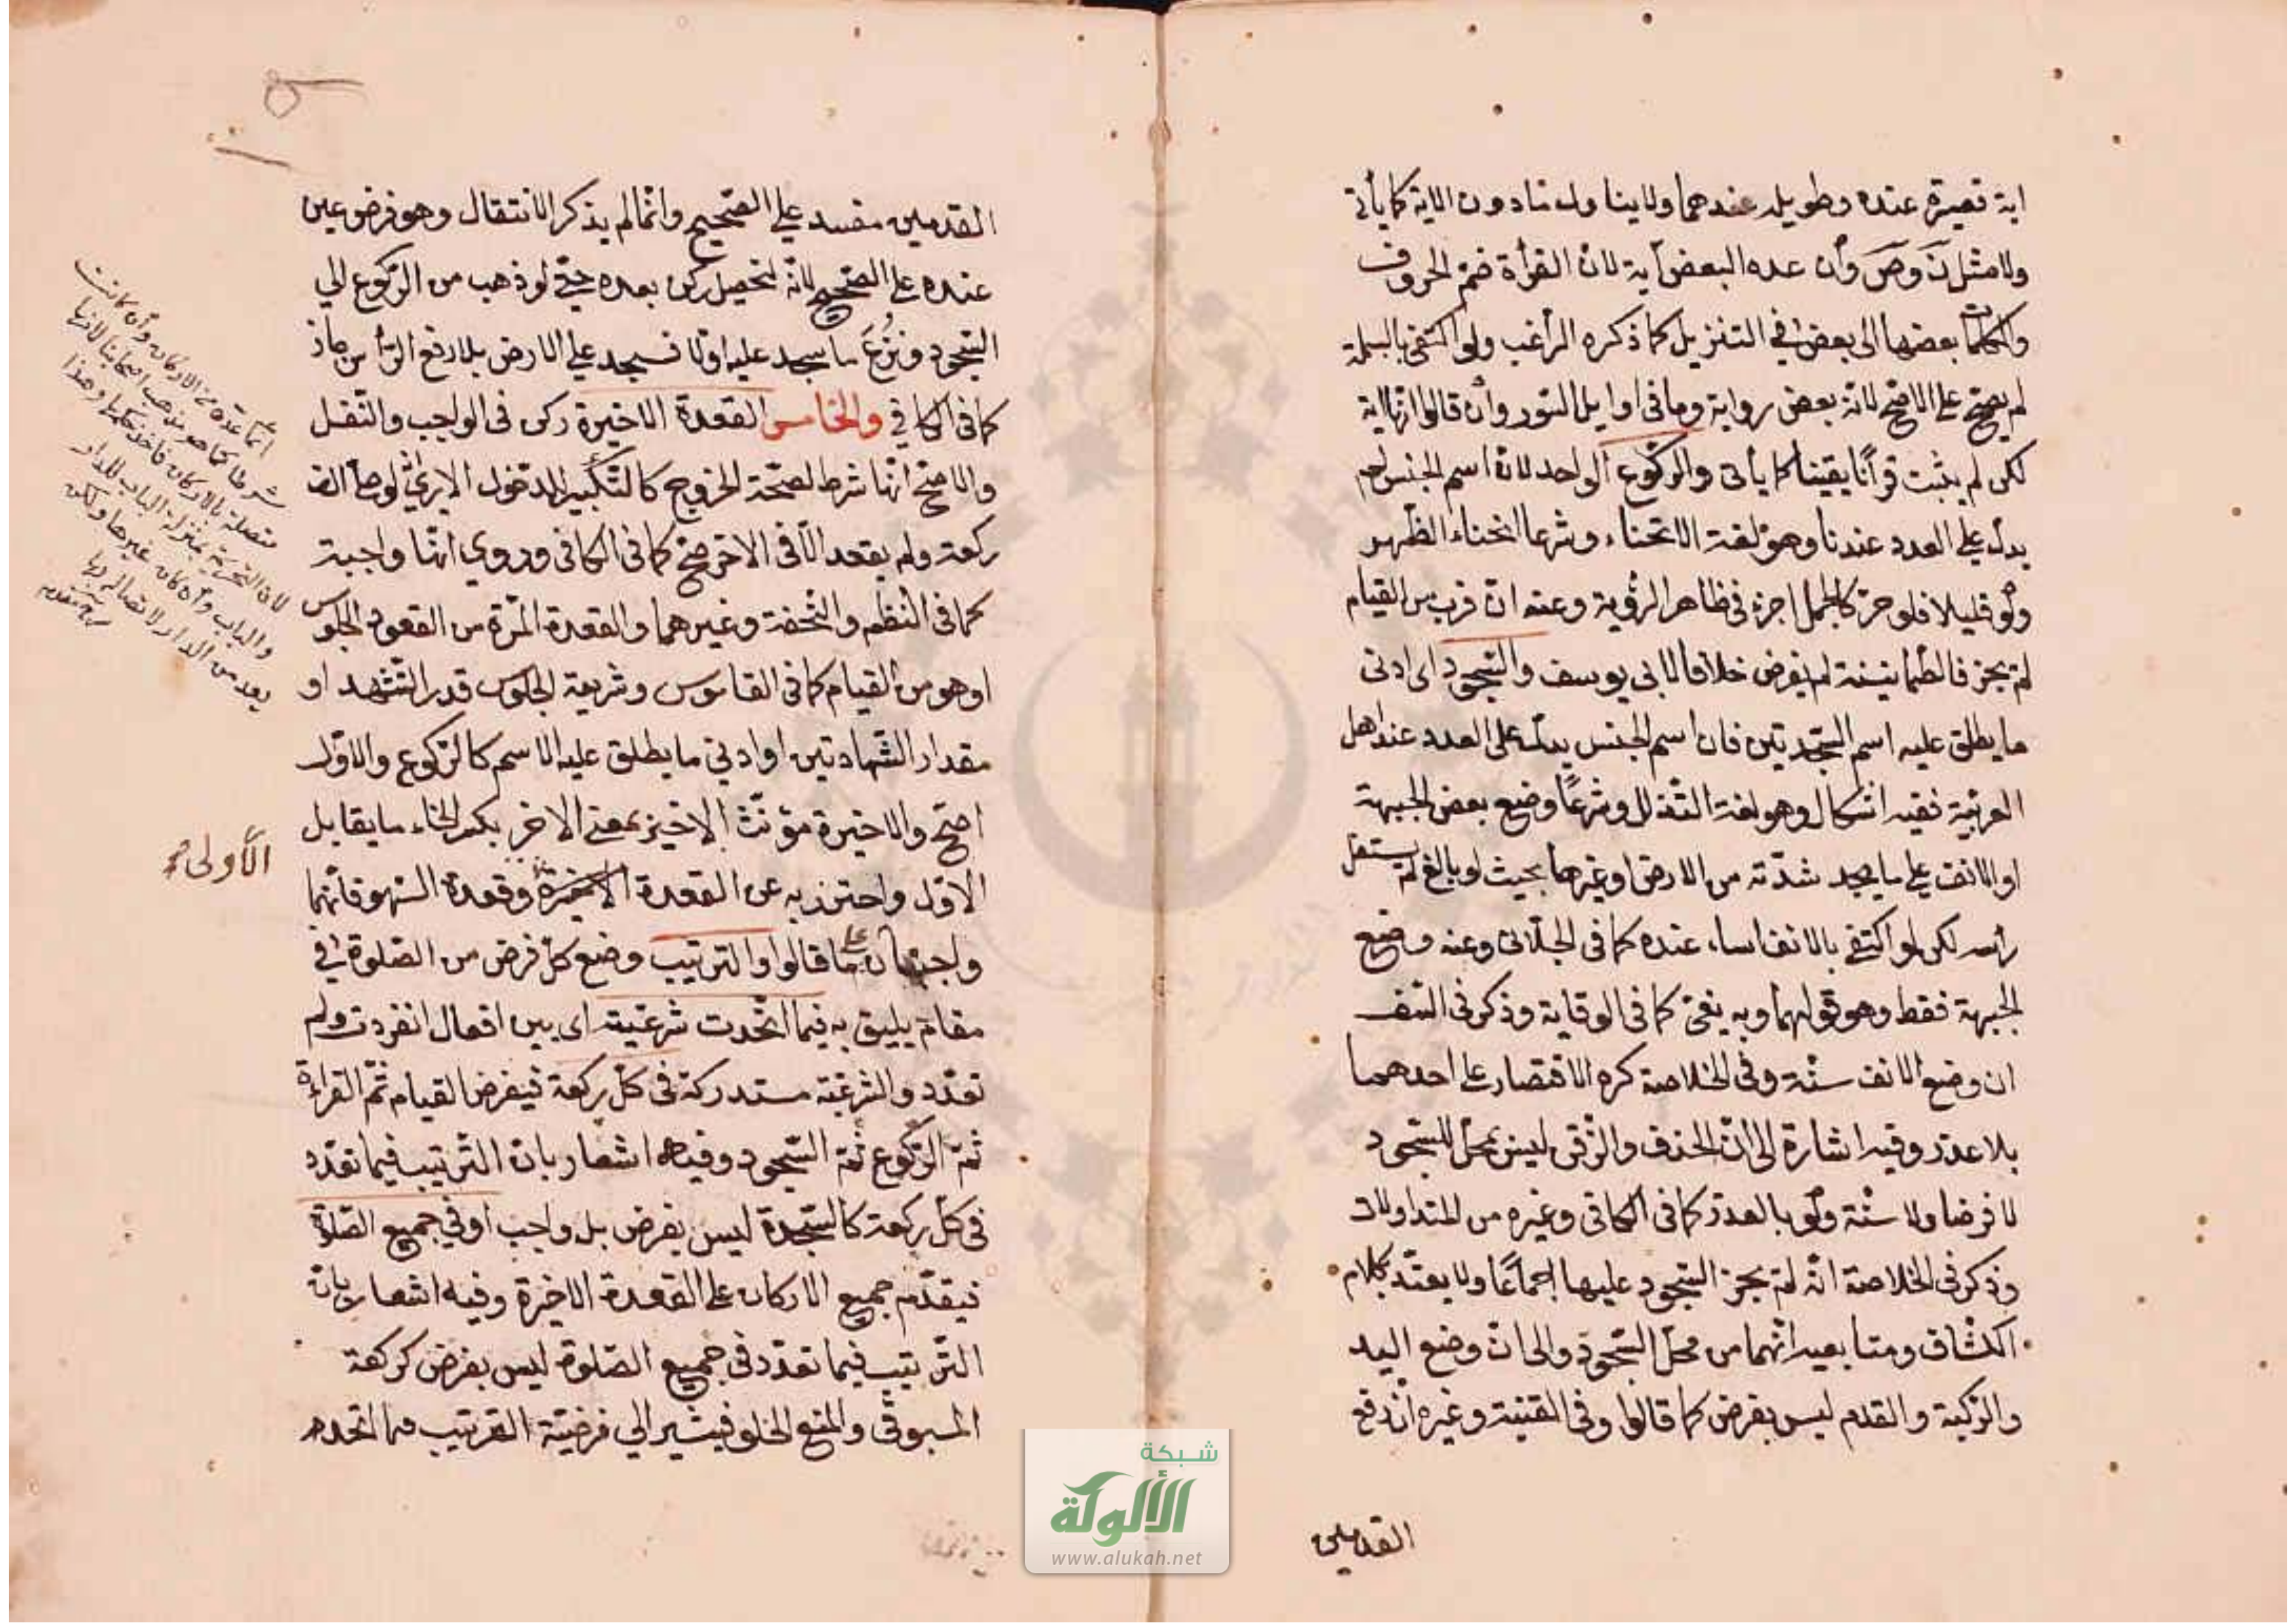 اية قصيرة عنده وطويلة عندهما ولا يتناول ما دون الاية كما يأتي
ولا مثل نَ وصَ وأن عده البعض آية لان القرأة ضم الحروف
والكلمات بعضها الى بعض في التنزيل كما ذكره الراغب ولو اكتفى بالبسملة
لم يصح على الاصح لانه بعض رواية وما في اوايل السور وأن قالوا انها اية
لكن لم يثبت قرآنا يقينا كما يأتى والركوع الواحد لان اسم الجنس لم
يدل على العدد عندنا وهو لغة الانحناء وشرعا انحناء الظهر
ولو قليلا فلو خر كالجمل اجزء في ظاهر الرؤية وعنه ان قرب من القيام
لم يجز فالطمانينة لم يفرض خلافا لابى يوسف والسجود اى ادنى
ما يطلق عليه اسم السجدتين فان اسم الجنس يدل على العدد عند اهل
العربية ففيه اشكال وهو لغة التذلل وشرعًا وضع بعض الجبهة
او الانف على ما يجد شدته من الارض او غيرها بحيث لو بالغ لم يستفل
رأسه لكن لو اكتفى بالانف اساء عنده كما فى الجلابي وعنه وضع
الجبهة فقط وهو قولهما وبه يفتى كما فى الوقاية وذكر فى التف
ان وضع الانف سنة وفى الخلاصة كره الاقتصار على احدهما
بلا عذر وفيه اشارة الى ان الخد والذقن ليس بمحل للسجود
لا فرضا ولا سنة ولو بالعذر كما فى الكافى وغيره من المتداولات
وذكر فى الخلاصة انه لم يجز السجود عليها اجماعًا ولا يعتد بكلام
الكشاف ومتابعيه انهما من محل السجود والى ان وضع اليد
والركبة والقدم ليس بفرض كما قالوا وفى القنية وغيره ان رفع
القدمين
القدمين مفسد على الصحيح وانما لم يذكر الانتقال وهو فرض عين
عنده على الصحيح لانه لتحصيل ركن بعده حتى لو ذهب من الركوع الى
السجود ونزع ما سجد عليه اولا فسجد على الارض بلا رفع الرأس جاز
كما فى الكافي والخامس القعدة الاخيرة ركن فى الواجب والنفل
والاصح انها شرط لصحة الخروج كالتكبير للدخول الا يرى لو صلى الف
ركعة ولم يقعد الا فى الاخر صح كما فى الكافى وروي انها واجبة
كما فى النظم والتحفة وغيرهما والقعدة المرة من القعود الجلوس
او هو من القيام كما فى القاموس وشريعة الجلوس قدر التشهد او
مقدار الشهادتين او ادنى ما يطلق عليه الاسم كالركوع والاول
اصح والاخيرة مؤنث الاخير بمعنى الاخر بكسر الخاء ما يقابل
الاول واحترز به عن القعدة الاخيرة وقعدة السهو فانهما
واجبتان على ما قالوا والترتيب وضع كل فرض من الصلوة في
مقام يليق به فيما اتحدت شرعيته اى بين افعال انفردت ولم
تعدد والشرعية مستدركة فى كل ركعة فيفرض القيام ثم القراءة
ثم الركوع ثم السجود وفيه اشعار بان الترتيب فيما تعدد
فى كل ركعة كالسجدة ليس بفرض بل واجب او في جميع الصلوة
فيقدم جميع الاركان على القعدة الاخيرة وفيه اشعار بان
الترتيب فيما تعدد فى جميع الصلوة ليس بفرض كركعة
المسبوق والمنع الخلو فيشير الى فرضية الترتيب فيما اتحد
انما عده من الاركان وأن كانت
شرطا كما هو مذهب اصحابنا لانها
متصلة بالاركان فأخذ حكمها وهذا
لان التحريمة بمنزلة الباب للدار
والباب وأن كان غيرها ولكن
يعد من الدار لاتصاله بها
الأولى صح
شبكة
الألوكة
www.alukah.net